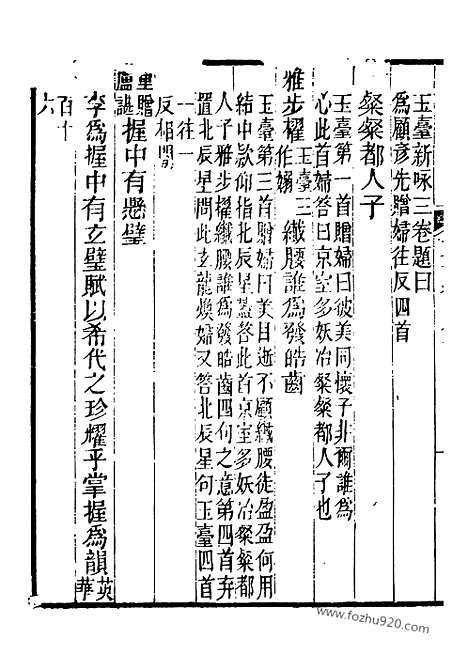 玉臺新咏三卷題曰
爲顧彦先贈婦往反四首
粲粲都人子
玉臺第一首贈婦曰彼美同懷子非爾誰爲
心此首婦答曰京室多妖冶粲粲都人子也
雅步擢玉臺三作嫋纖腰誰爲發皓齒
玉臺第三首贈婦曰美目逝不顧纖腰徒盈盈何用
結中欵仰指北辰星蓋答此首京室多妖冶粲粲都
人子雅步擢纖腰誰爲發皓齒四句之意第四首弃
置北辰星問此玄龍煥婦又答北辰星句玉臺四首
一往一
反相間
重贈盧諶握中有懸璧
李爲握中有玄璧賦以希代之珍耀乎掌握爲韻英華
百十
六
www.fozhu920.com